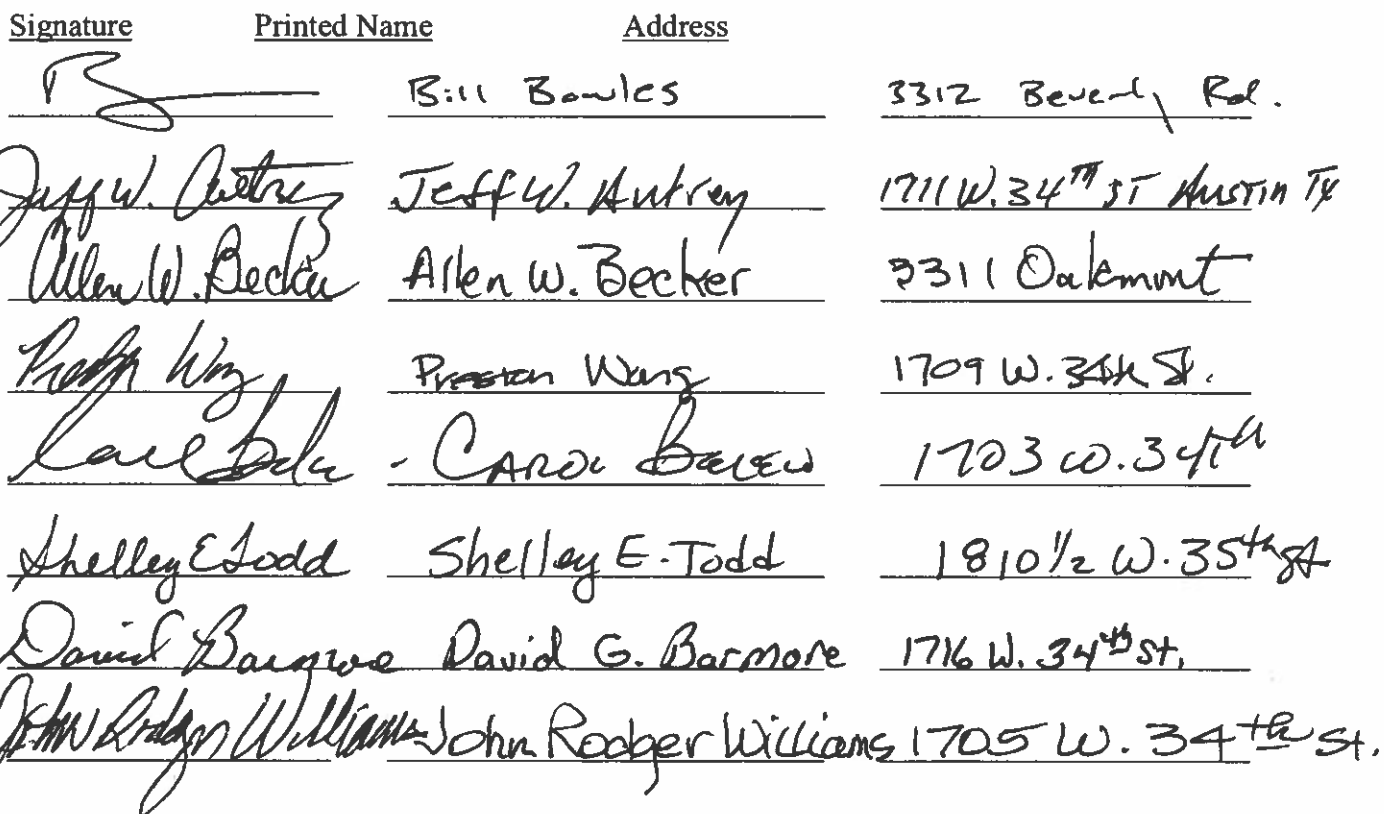 Signature Printed Name Address
Bill Bowles 3312 Beverly Rd.
Jeff W. Autrey Jeff W. Autrey 1711 W. 34TH ST Austin TX
Allen W. Becker Allen W. Becker 3311 Oakmont
Preston Wang Preston Wang 1709 W. 34th St.
Carol Belew - CAROL BELEW 1703 W. 34th
Shelley E Todd Shelley E. Todd 1810 1/2 W. 35th st
David Barmore David G. Barmore 1716 W. 34th St.
John Rodger Williams John Rodger Williams 1705 W. 34th St.